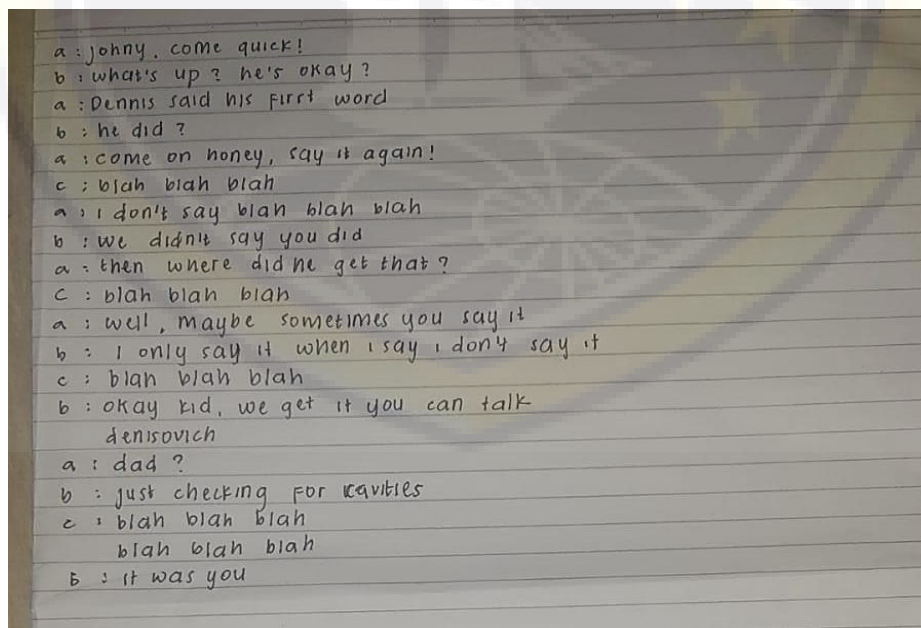 a : johny, come quick!
b : what's up? he's okay?
a : Dennis said his first word
b : he did?
a : come on honey, say it again!
c : blah blah blah
a : I don't say blah blah blah
b : we didn't say you did
a : then where did he get that?
c : blah blah blah
a : well, maybe sometimes you say it
b : I only say it when I say I don't say it
c : blah blah blah
b : okay kid, we get it you can talk
denisovich
a : dad?
b : just checking for cavities
c : blah blah blah
blah blah blah
b : it was you